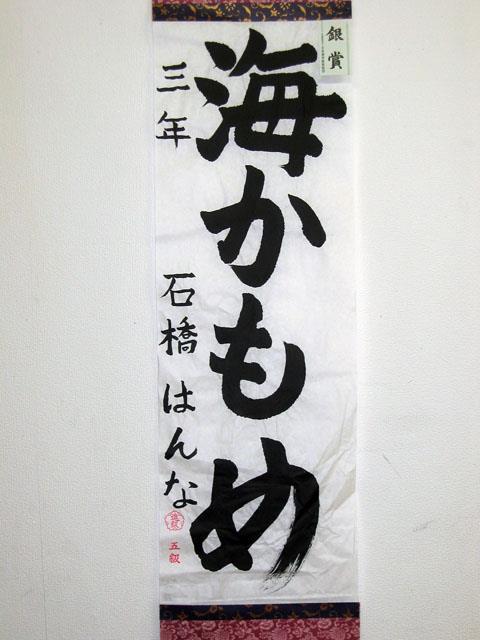 銀賞
海かもめ
三年 石橋はんな
五級